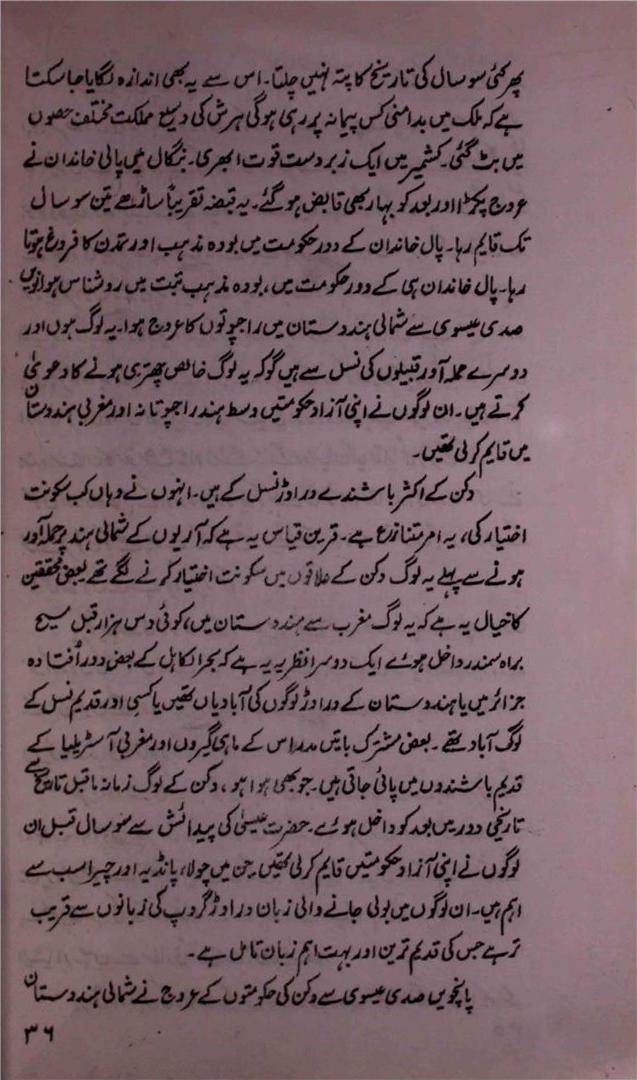 پھر کئی سو سال کی تاریخ کا پتہ نہیں چلتا۔ اس سے یہ بھی اندازہ لگایا جا سکتا
ہے کہ ملک میں بدامنی کس پیمانہ پر رہی ہوگی ہرش کی وسیع مملکت مختلف حصوں
میں بٹ گئی۔ کشمیر میں ایک زبردست قوت ابھری۔ بنگال میں پالی خاندان نے
عروج پکڑا اور بعد کو بہار بھی قابض ہو گئے۔ یہ قبضہ تقریباً ساڑھے تین سو سال
تک قایم رہا۔ پال خاندان کے دور حکومت میں بودھ مذہب اور تمدن کا فروغ ہوتا
رہا۔ پال خاندان ہی کے دور حکومت میں، بودھ مذہب تبت میں روشناس ہوا نویں
صدی عیسوی سے شمالی ہندوستان میں راجپوتوں کا عروج ہوا۔ یہ لوگ ہوں اور
دوسرے حملہ آور قبیلوں کی نسل سے ہیں گو کہ یہ لوگ خالص چھتری ہونے کا دعویٰ
کرتے ہیں۔ ان لوگوں نے اپنی آزاد حکومتیں وسط ہند راجپوتانہ اور مغربی ہندوستان
میں قایم کر لی تھیں۔
دکن کے اکثر باشندے دراوڑ نسل کے ہیں۔ انہوں نے وہاں کب سکونت
اختیار کی، یہ امر متنازع ہے۔ قرین قیاس یہ ہے کہ آریوں کے شمالی ہند پر حملہ آور
ہونے سے پہلے یہ لوگ دکن کے علاقوں میں سکونت اختیار کرنے لگے تھے بعض محققین
کا خیال یہ ہے کہ یہ لوگ مغرب سے ہندوستان میں، کوئی دس ہزار قبل مسیح
براہ سمندر داخل ہوئے ایک دوسرا نظریہ یہ ہے کہ بحر الکاہل کے بعض دور اُفتادہ
جزائر میں یا ہندوستان کے دراوڑ لوگوں کی آبادیاں تھیں یا کسی اور قدیم نسل کے
لوگ آباد تھے۔ بعض مشترک باتیں مدراس کے ماہی گیروں اور مغربی آسٹریلیا کے
قدیم باشندوں میں پائی جاتی ہیں۔ جو بھی ہوا ہو، دکن کے لوگ زمانہ ماقبل تاریخ سے
تاریخی دور میں بعد کو داخل ہوئے۔ حضرت عیسیٰ کی پیدائش سے سو سال قبل ان
لوگوں نے اپنی آزاد حکومتیں قایم کر لی تھیں۔ جن میں چولا، پانڈیہ اور چیرا سب سے
اہم ہیں۔ ان لوگوں میں بولی جانے والی زبان دراوڑ گروپ کی زبانوں سے قریب
تر ہے جس کی قدیم ترین اور بہت اہم زبان تامل ہے۔
پانچویں صدی عیسوی سے دکن کی حکومتوں کے عروج نے شمالی ہندوستان
۳۶